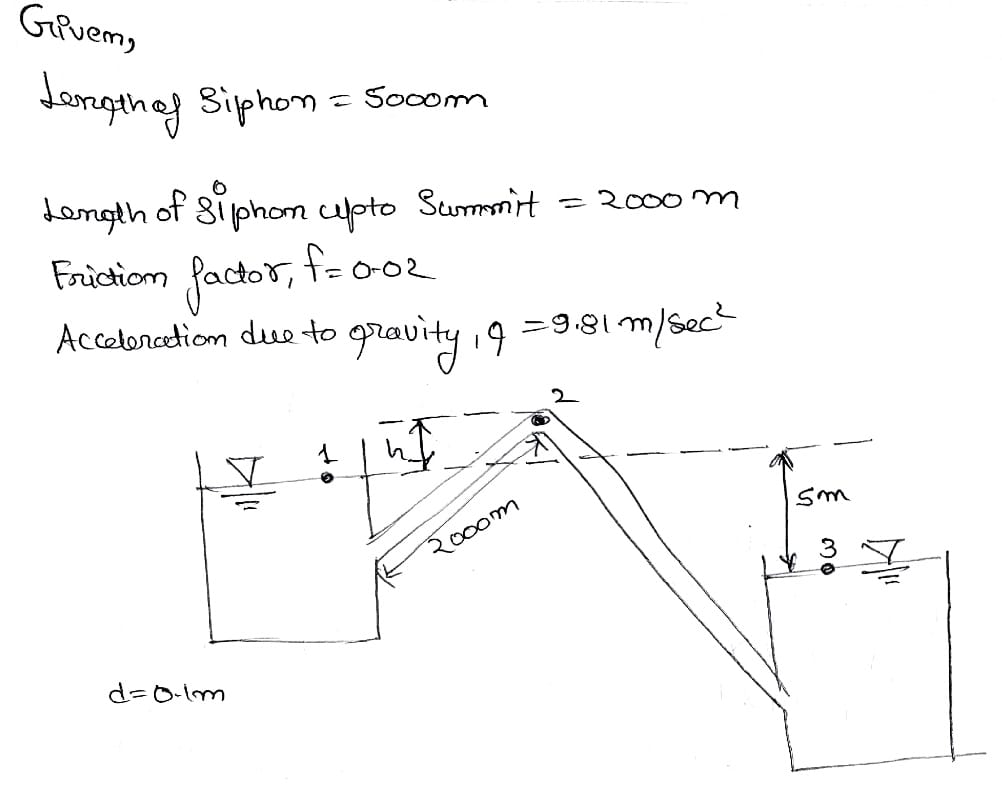 Given,
Length of Siphon = 5000m
Length of Siphon upto Summit = 2000 m
Friction factor, f = 0.02
Acceleration due to gravity, g = 9.81 m/sec²
2
1
h
5m
2000m
3
d = 0.1m